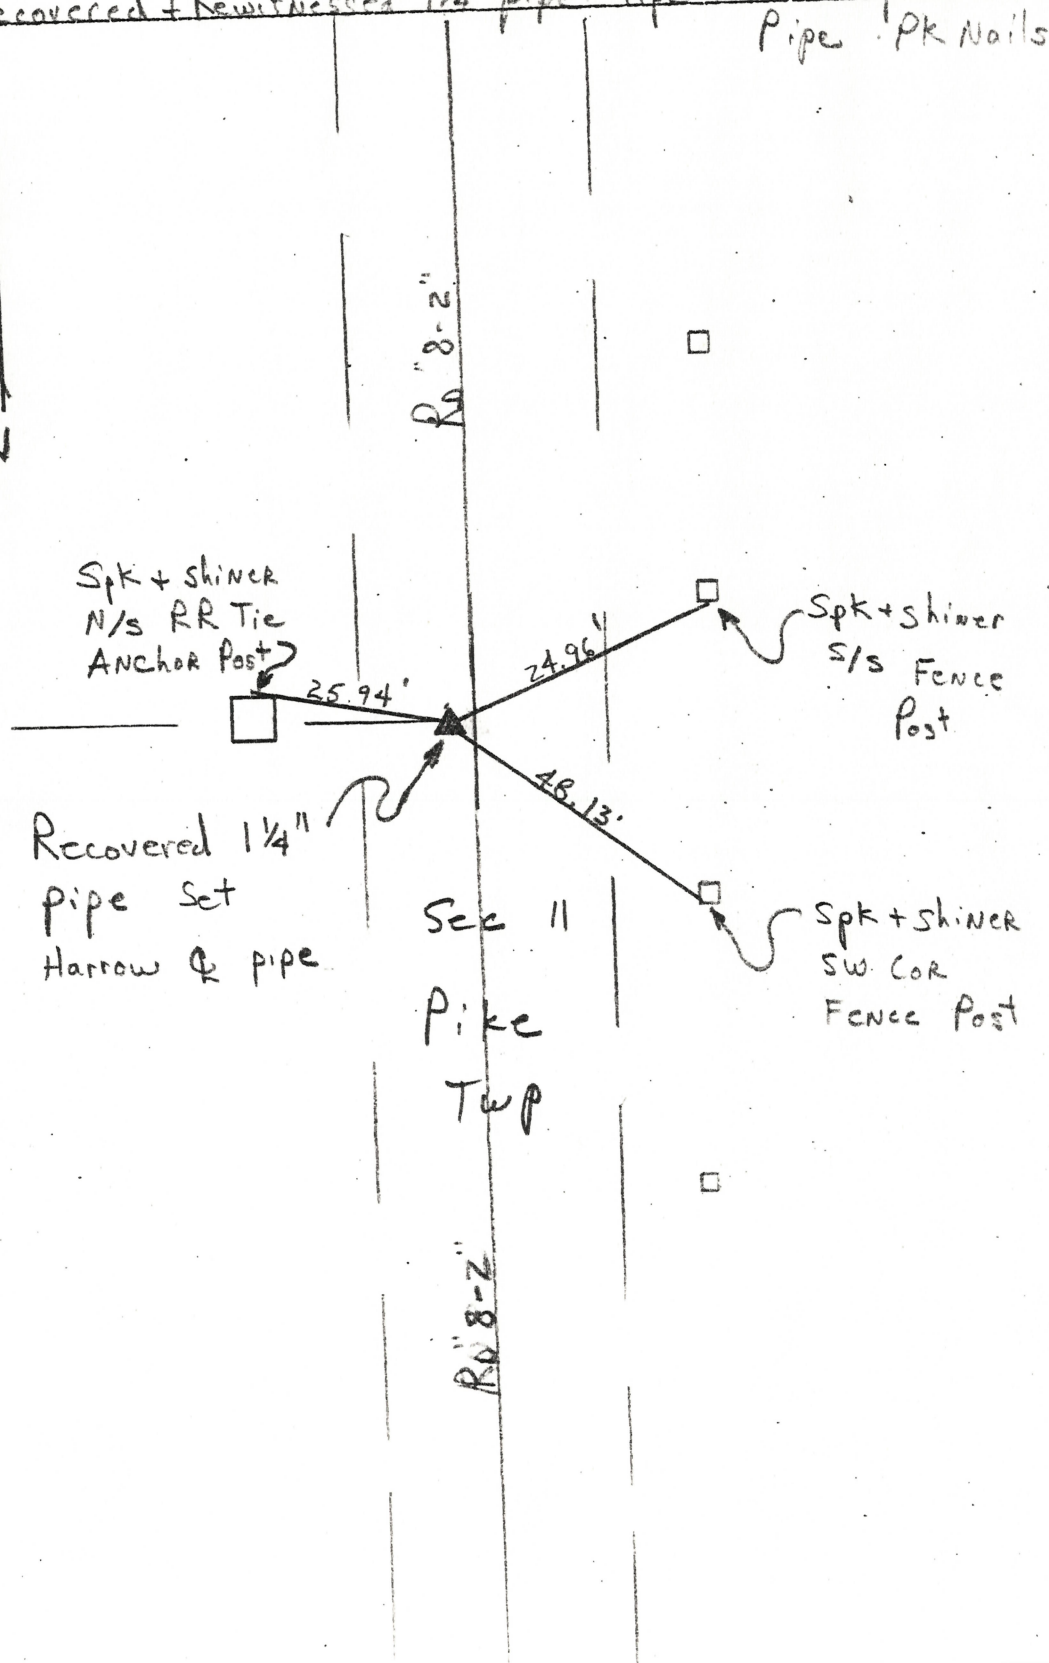 Recovered + Rewitnessed pipe
Pipe ! PK Nails
Rd "8-2"
Spk + shiner
N/s RR Tie
Anchor Post
25.94'
24.96'
Spk + shiner
S/s Fence
Post
48.13'
Recovered 1 1/4"
pipe Set
Harrow ℄ pipe
Sec 11
Pike
Twp
Spk + shiner
SW. Cor
Fence Post
Rd "8-2"